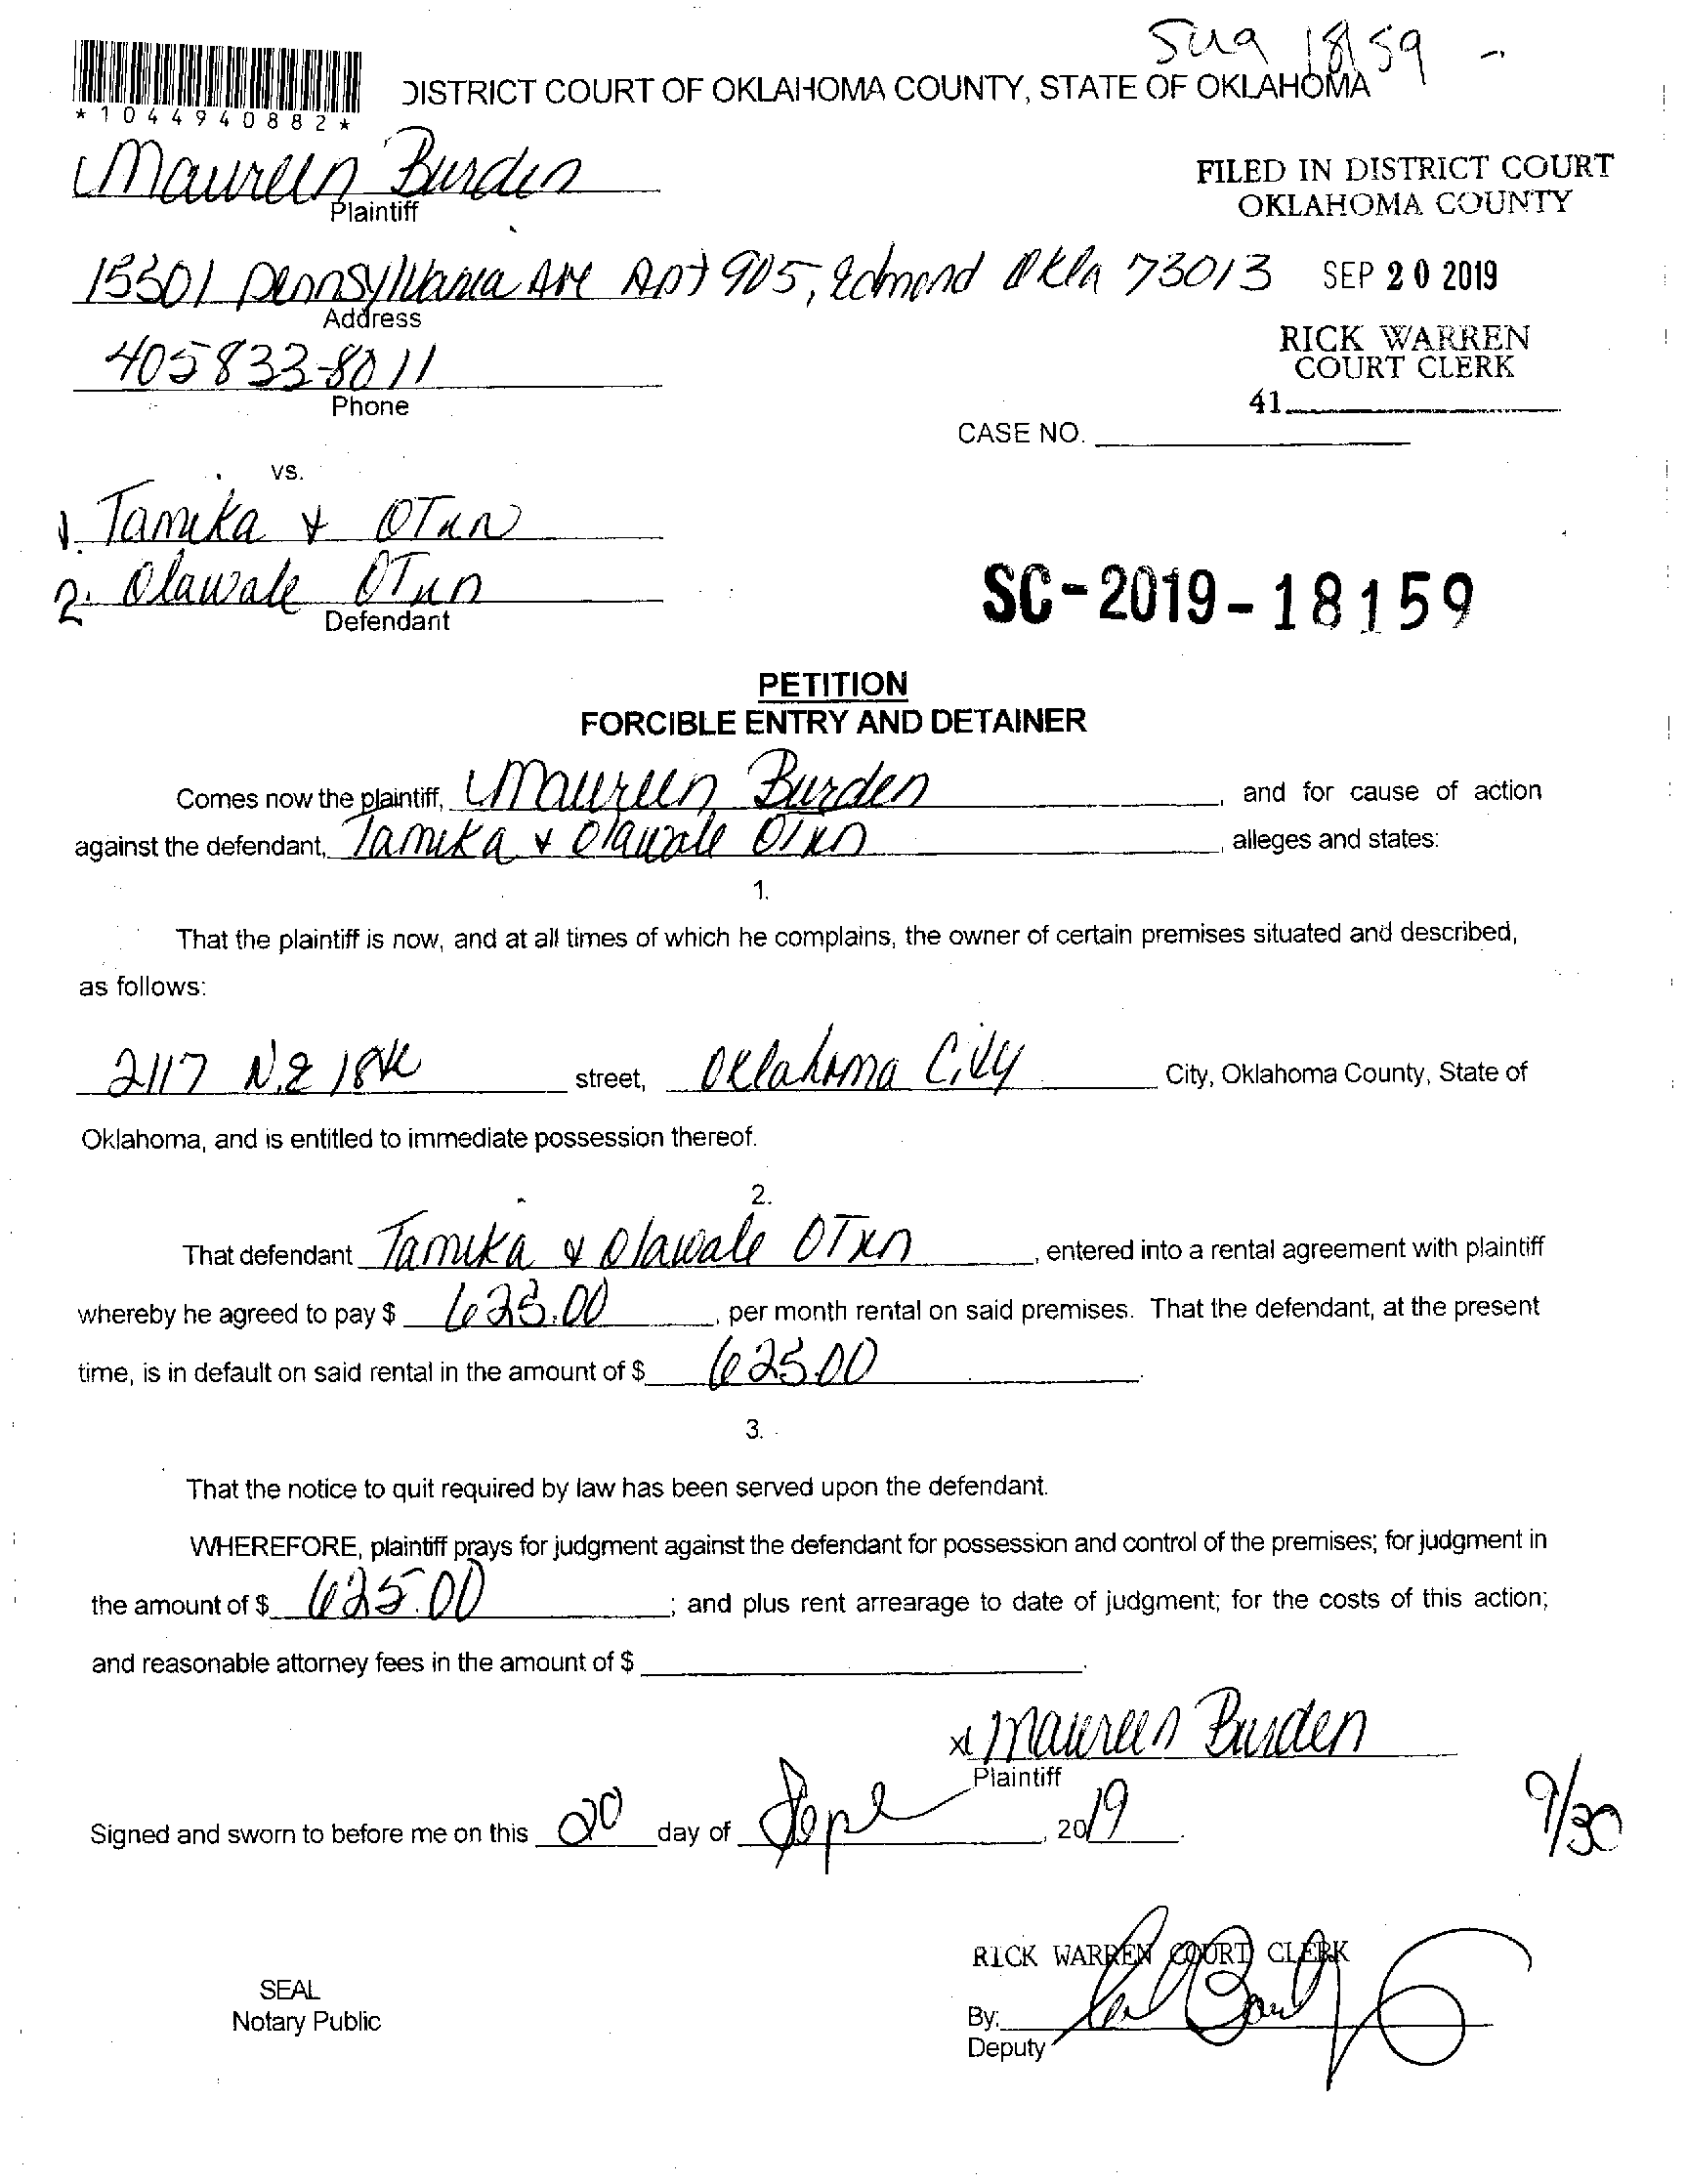 Sua 18159 -
DISTRICT COURT OF OKLAHOMA COUNTY, STATE OF OKLAHOMA
*1044940882*
Maureen Burden
Plaintiff
FILED IN DISTRICT COURT
OKLAHOMA COUNTY
15301 Pennsylvania Ave Apt 905, Edmond Okla 73013
Address
SEP 20 2019
405 833-8011
Phone
RICK WARREN
COURT CLERK
41
CASE NO.
vs.
1. Tamika & OTun
2. Olawale OTun
Defendant
SC-2019-18159
PETITION
FORCIBLE ENTRY AND DETAINER
Comes now the plaintiff, Maureen Burden, and for cause of action
against the defendant, Tamika & Olawale OTun, alleges and states:
1.
That the plaintiff is now, and at all times of which he complains, the owner of certain premises situated and described,
as follows:
2117 N.E 18th street, Oklahoma City City, Oklahoma County, State of
Oklahoma, and is entitled to immediate possession thereof.
2.
That defendant Tamika & Olawale OTun, entered into a rental agreement with plaintiff
whereby he agreed to pay $ 625.00, per month rental on said premises. That the defendant, at the present
time, is in default on said rental in the amount of $ 625.00.
3.
That the notice to quit required by law has been served upon the defendant.
WHEREFORE, plaintiff prays for judgment against the defendant for possession and control of the premises; for judgment in
the amount of $ 625.00; and plus rent arrearage to date of judgment; for the costs of this action;
and reasonable attorney fees in the amount of $ .
x Maureen Burden
Plaintiff
Signed and sworn to before me on this 20 day of Sept, 2019.
9/30
RICK WARREN COURT CLERK
SEAL
Notary Public
By:
Deputy